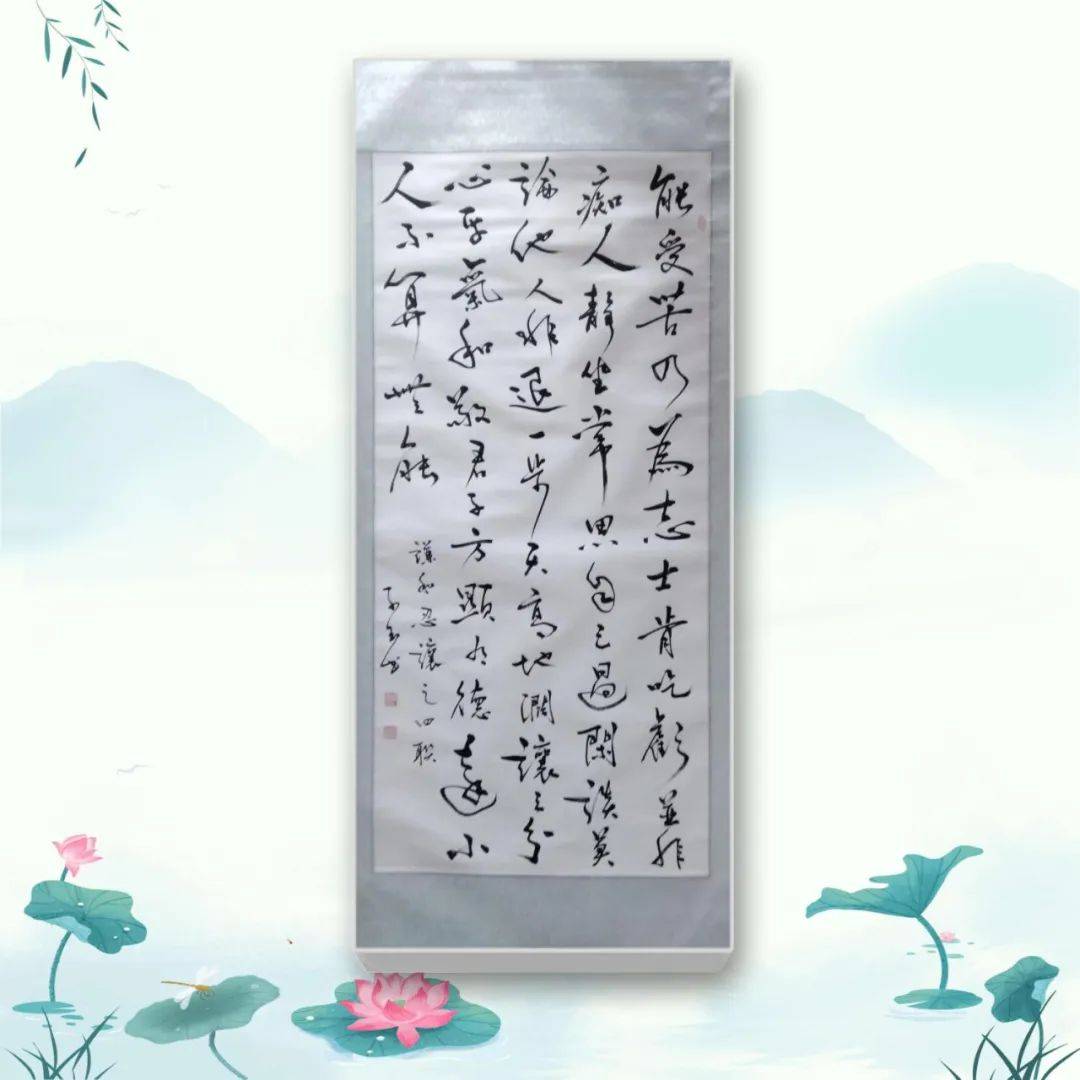 能受苦乃為志士肯吃虧並非
痴人靜坐常思自己過閑談莫
論他人非退一步天高地濶讓三分
心平氣和敬君子方顯有德小
人不算無能
謙和忍讓之四聯